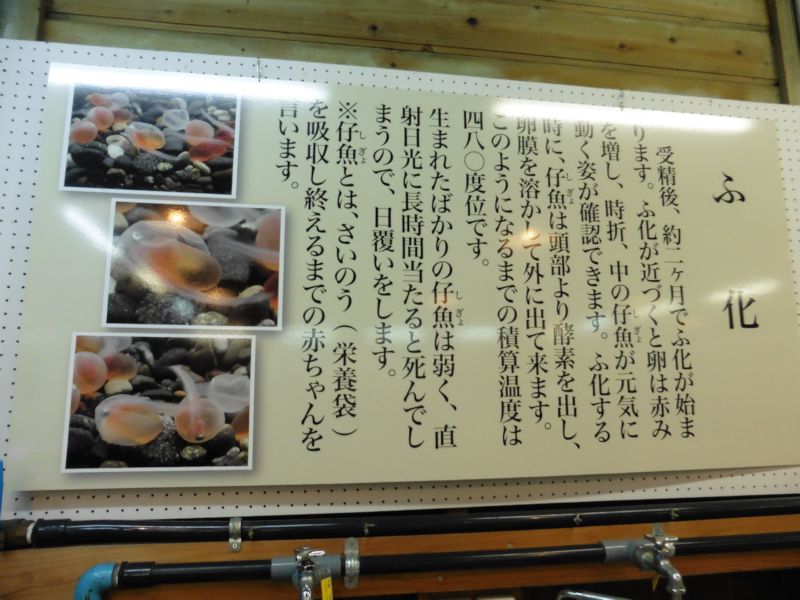 ふ化
受精後、約二ヶ月でふ化が始ま
ります。ふ化が近づくと卵は赤み
を増し、時折、中の仔魚が元気に
動く姿が確認できます。ふ化する
時に、仔魚は頭部より酵素を出し、
卵膜を溶かして外に出て来ます。
このようになるまでの積算温度は
四八〇度位です。
生まれたばかりの仔魚は弱く、直
射日光に長時間当たると死んでし
まうので、日覆いをします。
※仔魚とは、さいのう(栄養袋)
を吸収し終えるまでの赤ちゃんを
言います。